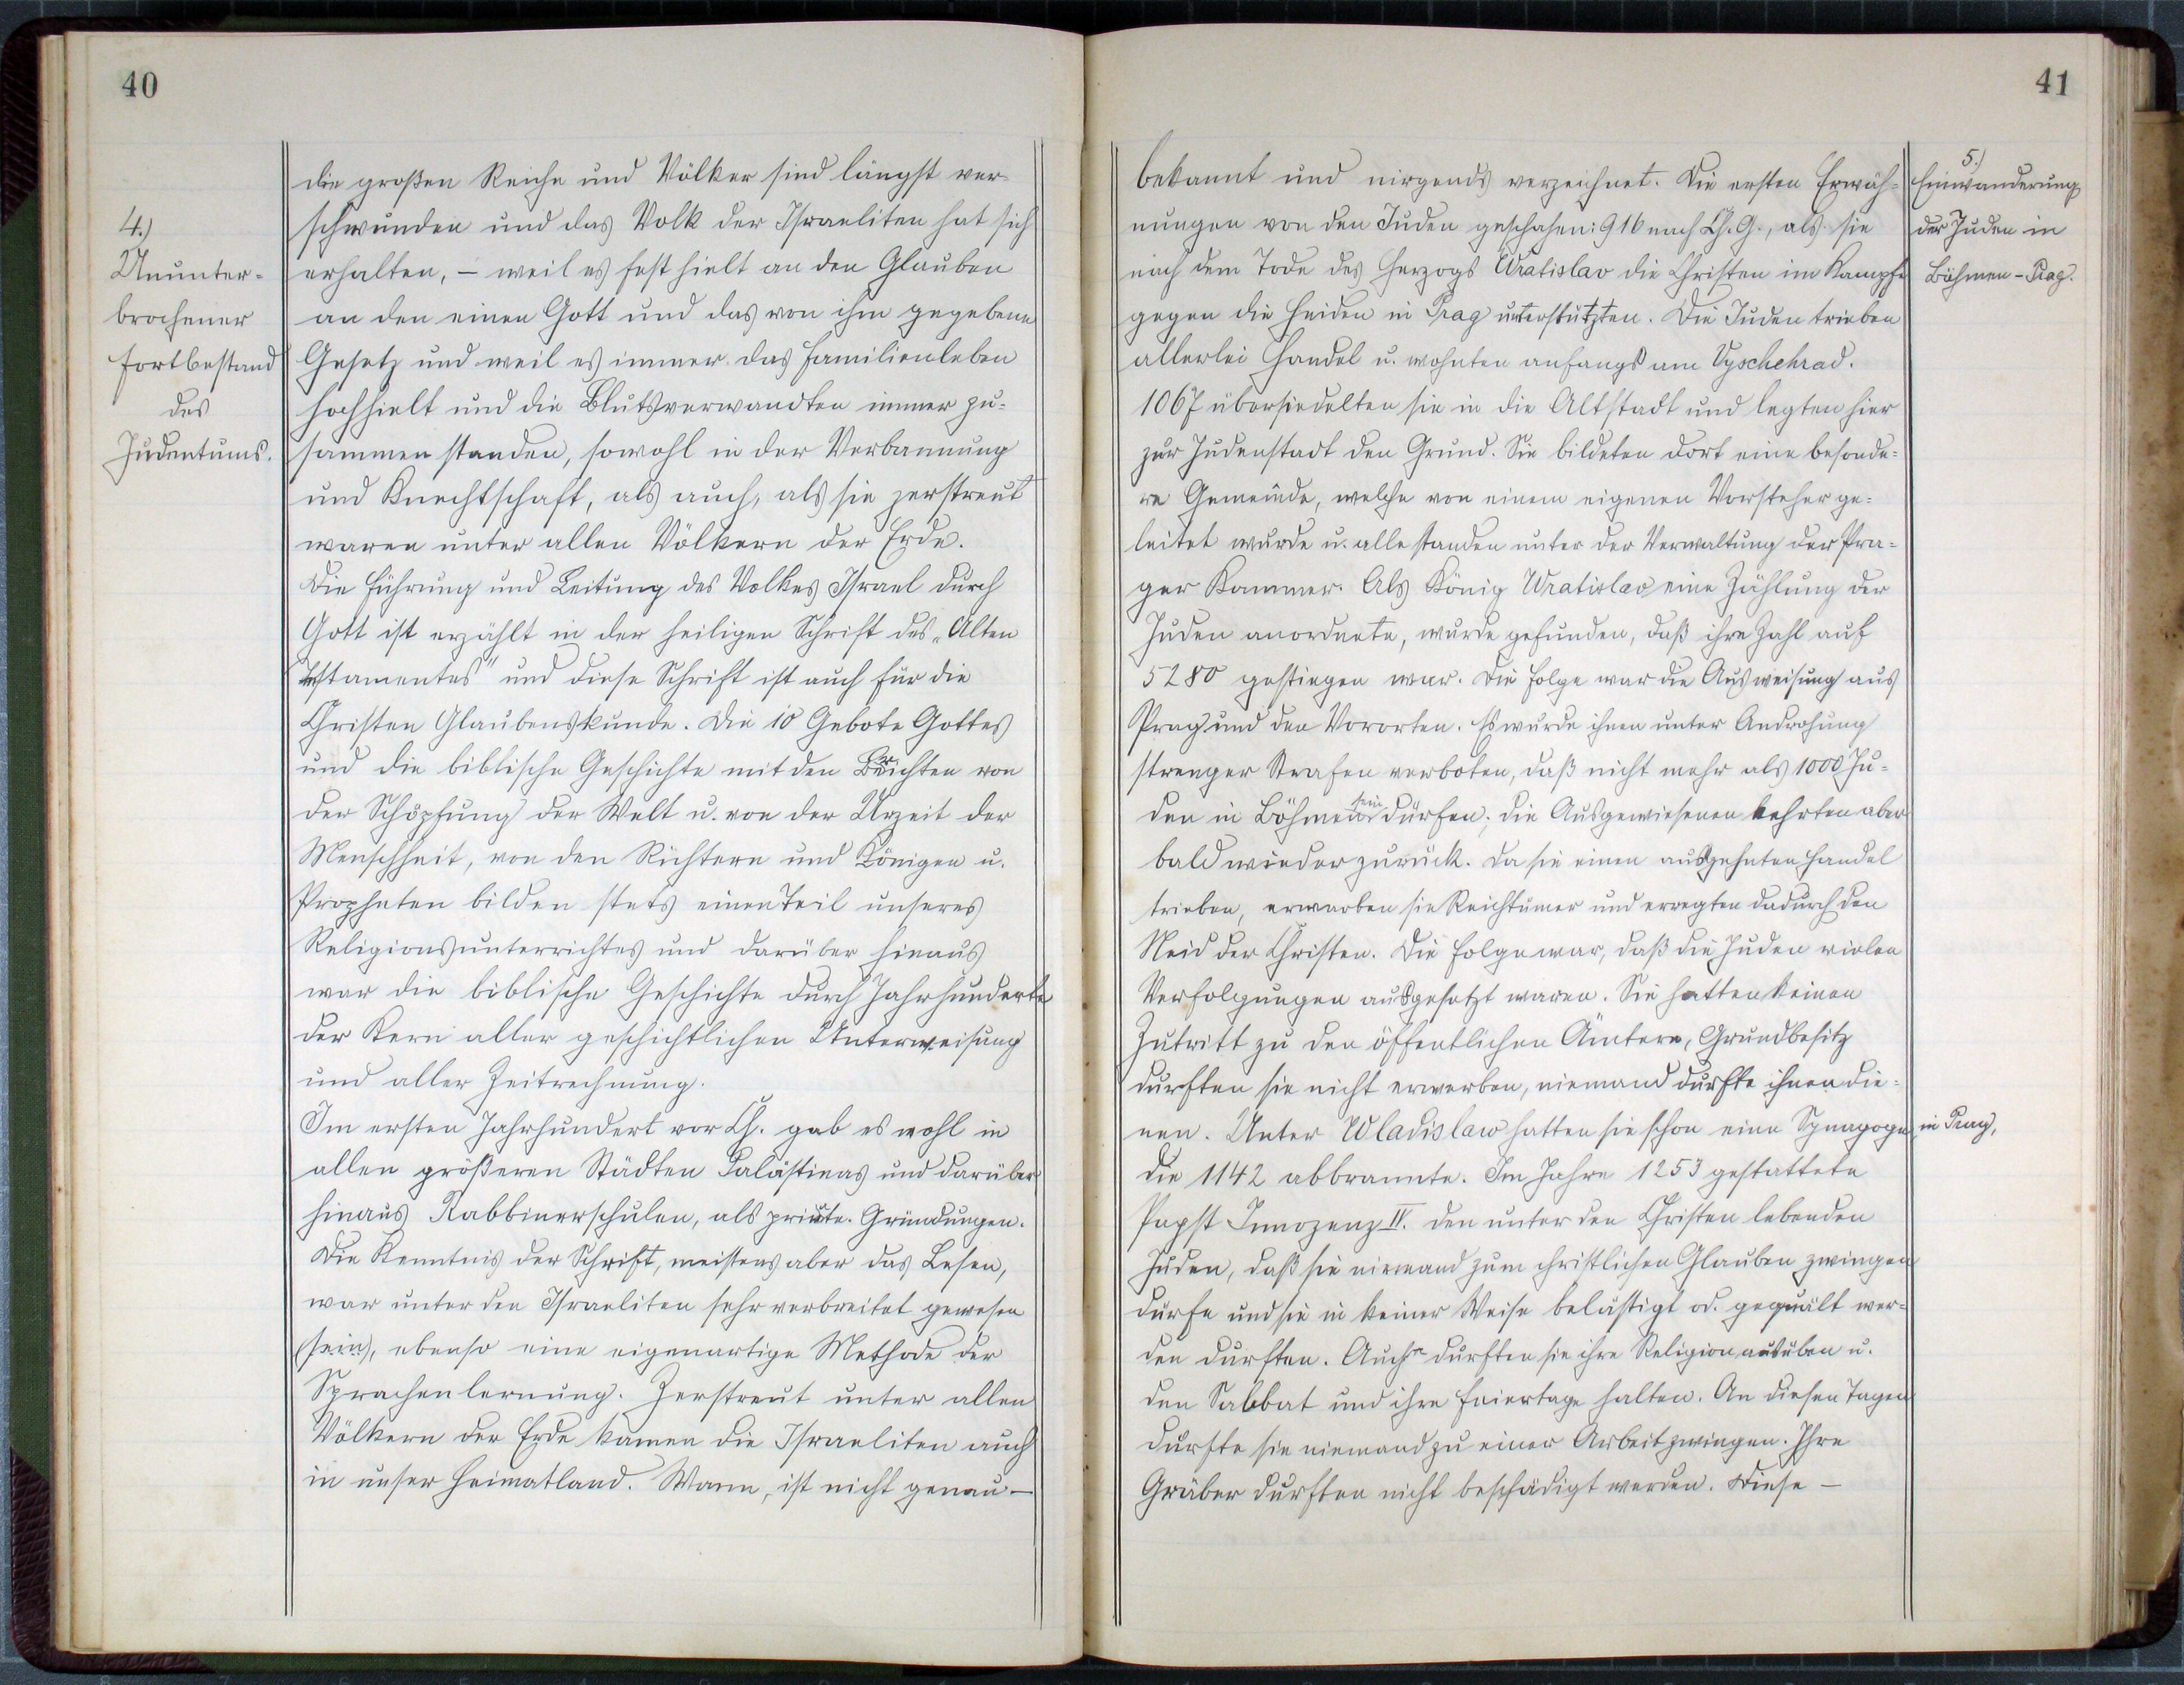 40
4.)
Ununter-
brochener
Fortbestand
des
Judentums.
die großen Reiche und Völker sind längst ver-
schwunden und das Volk der Israeliten hat sich
erhalten, – weil es fest hielt an den Glauben
an den einen Gott und das von ihm gegebene
Gesetz und weil es immer das Familienleben
hochhielt und die Blutsverwandten immer zu-
sammen standen, sowohl in der Verbannung
und Knechtschaft, als auch, als sie zerstreut
waren unter allen Völkern der Erde.
Die Führung und Leitung des Volkes Israel durch
Gott ist erzählt in der heiligen Schrift des „Alten
Testamentes" und diese Schrift ist auch für die
Christen Glaubenskunde. Die 10 Gebote Gottes
und die biblische Geschichte mit den Berichten von
der Schöpfung der Welt u. von der Urzeit der
Menschheit, von den Richtern und Königen u.
Propheten bilden stets einen Teil unseres
Religionsunterrichtes und darüber hinaus
war die biblische Geschichte durch Jahrhunderte
der Kern aller geschichtlichen Unterweisung
und aller Zeitrechnung.
Im ersten Jahrhundert vor Ch. gab es wohl in
allen größeren Städten Palästinas und darüber
hinaus Rabbinerschulen, als private Gründungen.
Die Kenntnis der Schrift, meistens aber das Lesen,
war unter den Israeliten sehr verbreitet gewesen
(sein), ebenso eine eigenartige Methode der
Sprachenlernung. Zerstreut unter allen
Völkern der Erde kamen die Israeliten auch
in unser Heimatland. Wann, ist nicht genau –
41
5.)
Einwanderung
der Juden in
Böhmen-Prag.
bekannt und nirgends verzeichnet. Die ersten Erwäh-
nungen von den Juden geschahen: 916 nach Ch. G., als sie
nach dem Tode des Herzogs Wratislav die Christen im Kampfe
gegen die Heiden in Prag unterstützten. Die Juden trieben
allerlei Handel u. wohnten anfangs am Vyschehrad.
1067 übersiedelten sie in die Altstadt und legten hier
zur Judenstadt den Grund. Sie bildeten dort eine besonde-
re Gemeinde, welche von einem eigenen Vorsteher ge-
leitet wurde u. alle standen unter der Verwaltung der Pra-
ger Kammer. Als König Wratislav eine Zählung der
Juden anordnete, wurde gefunden, daß ihre Zahl auf
5280 gestiegen war. Die Folge war die Ausweisung aus
Prag und den Vororten. Es wurde ihnen unter Androhung
strenger Strafen verboten, daß nicht mehr als 1000 Ju-
den in Böhmen sein dürfen; die Ausgewiesenen kehrten aber
bald wieder zurück. Da sie einen ausgehnten Handel
trieben, erwarben sie Reichtümer und erregten dadurch den
Neid der Christen. Die Folge war, daß die Juden vielen
Verfolgungen ausgesetzt waren. Sie hatten keinen
Zutritt zu den öffentlichen Ämtern, Grundbesitz
durften sie nicht erwerben, niemand durfte ihnen die-
nen. Unter Wladislaw hatten sie schon eine Synagoge in Prag,
die 1142 abbrannte. Im Jahre 1253 gestattete
Papst Innozenz IV. den unter den Christen lebenden
Juden, daß sie niemand zum christlichen Glauben zwingen
dürfe und sie in keiner Weise belästigt od. gequält wer-
den durften. Auch durften sie ihre Religion ausüben u.
den Sabbat und ihre Feiertage halten. An diesen Tagen
durfte sie niemand zu einer Arbeit zwingen. Ihre
Gräber durften nicht beschädigt werden. Diese –